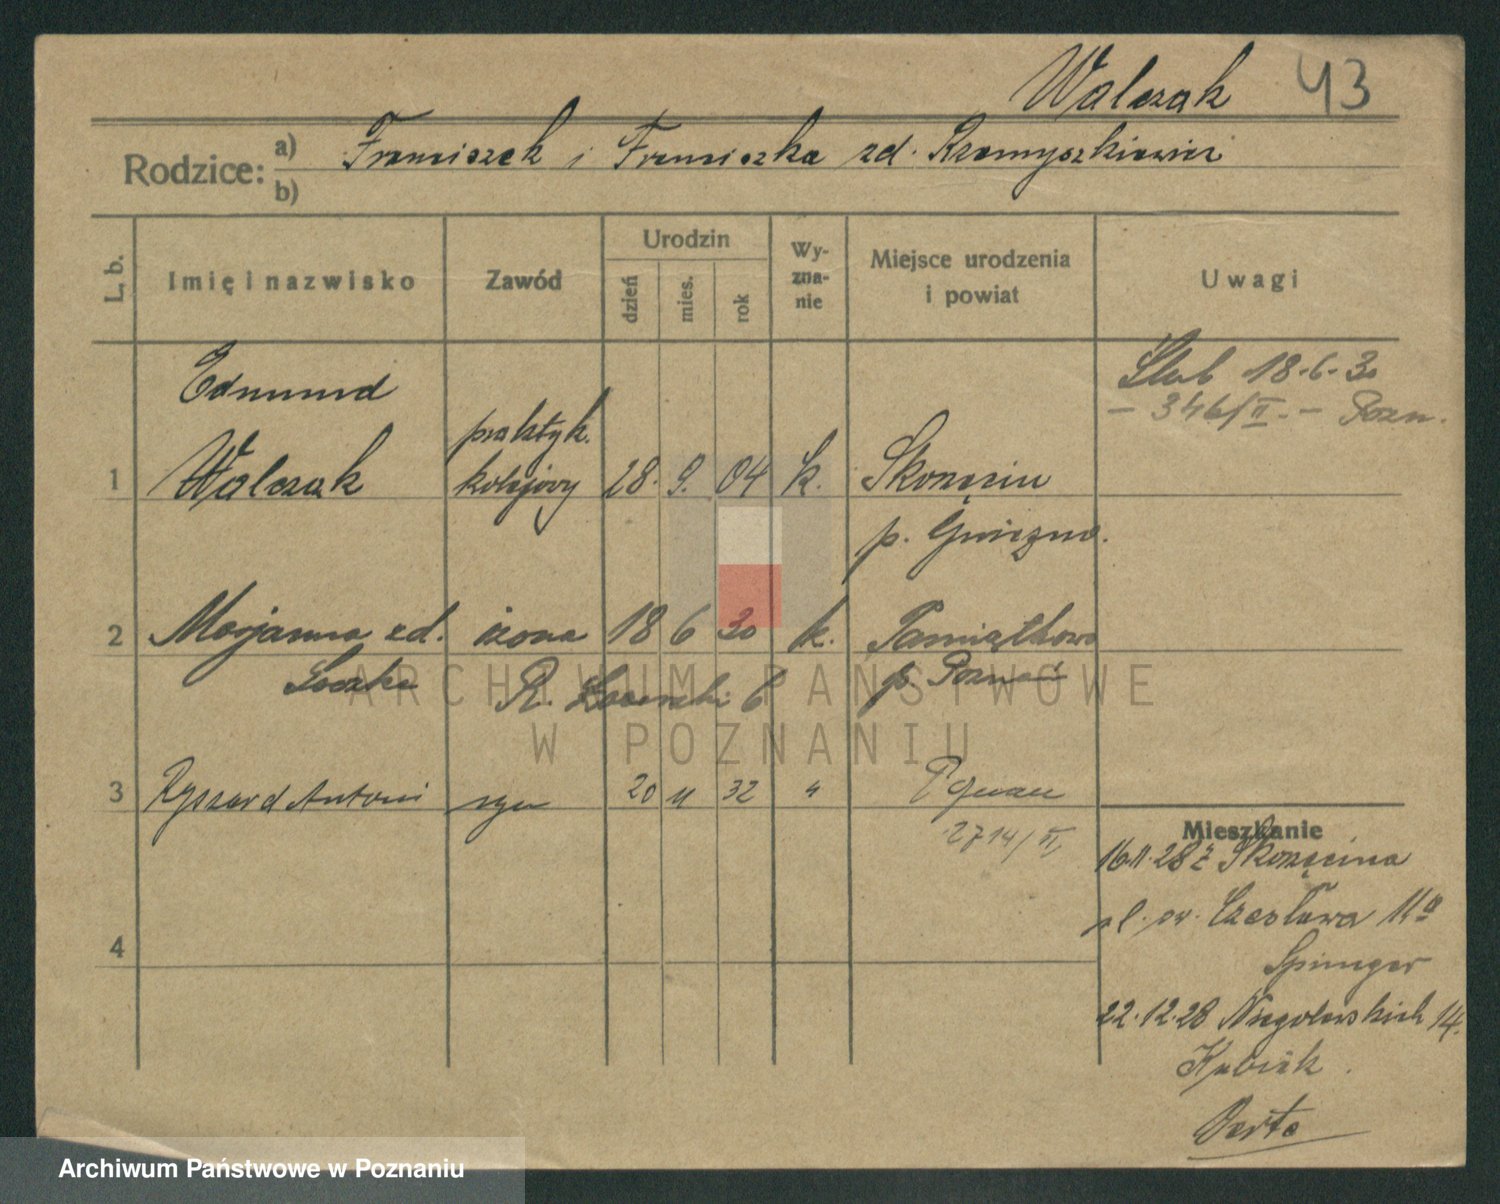 Walczak 43
Rodzice: a) Franciszek i Franciszka zd.
b)
L. b. Imię i nazwisko Zawód Urodzin dzień mies. rok Wy-zna-nie Miejsce urodzenia i powiat Uwagi
Edmund Ślub 18-6-30
praktyk. – 346/II. – Pozn.
1 Walczak kolejowy 28. 9. 04 k. Skorzęcin
p. Gniezno.
2 Marjanna zd. żona 18 6 30 k. Pamiątkowo
p. Poznań
3 Ryszard Antoni syn 20 11 32 " Poznań
2714/II
Mieszkanie
16.11.28 z Skorzęcina
św. Czesława 11a
4
22.12.28 Niegolewskich 14.
Kubiak.
ARCHIWUM PAŃSTWOWE
W POZNANIU
Archiwum Państwowe w Poznaniu